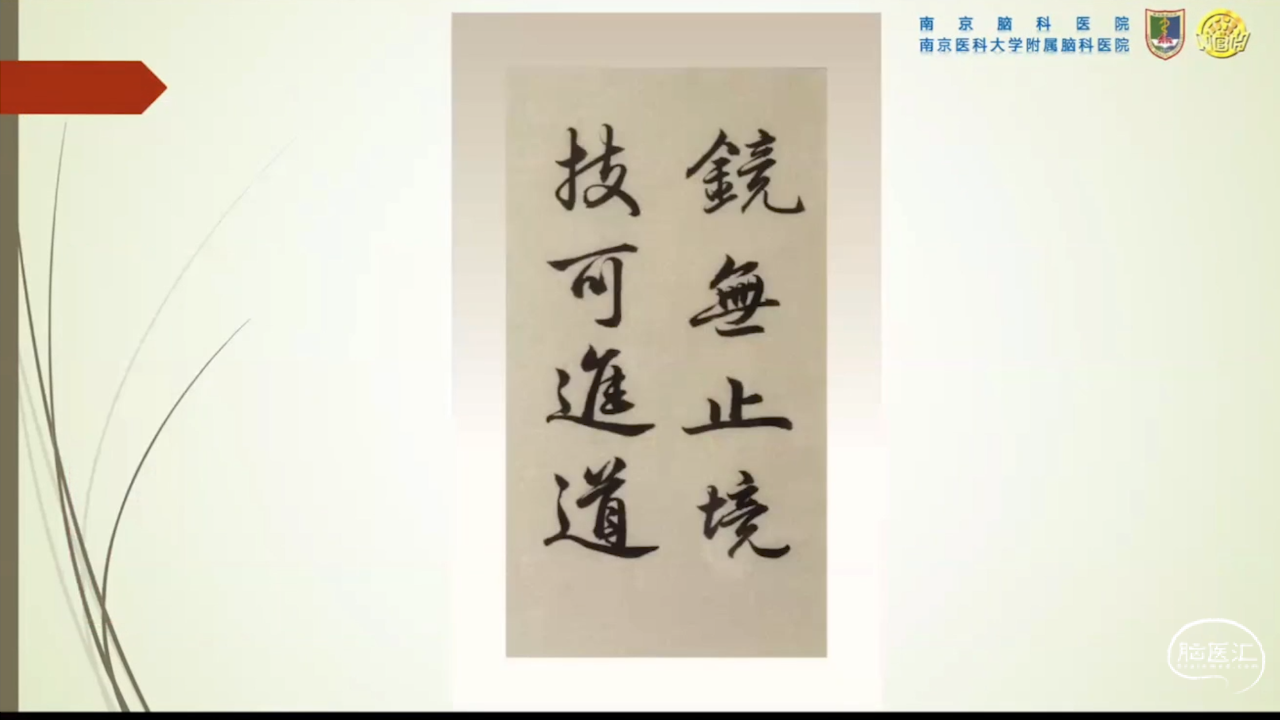 南京脑科医院
南京医科大学附属脑科医院
鏡無止境
技可進道
脑医汇
brainmed.com